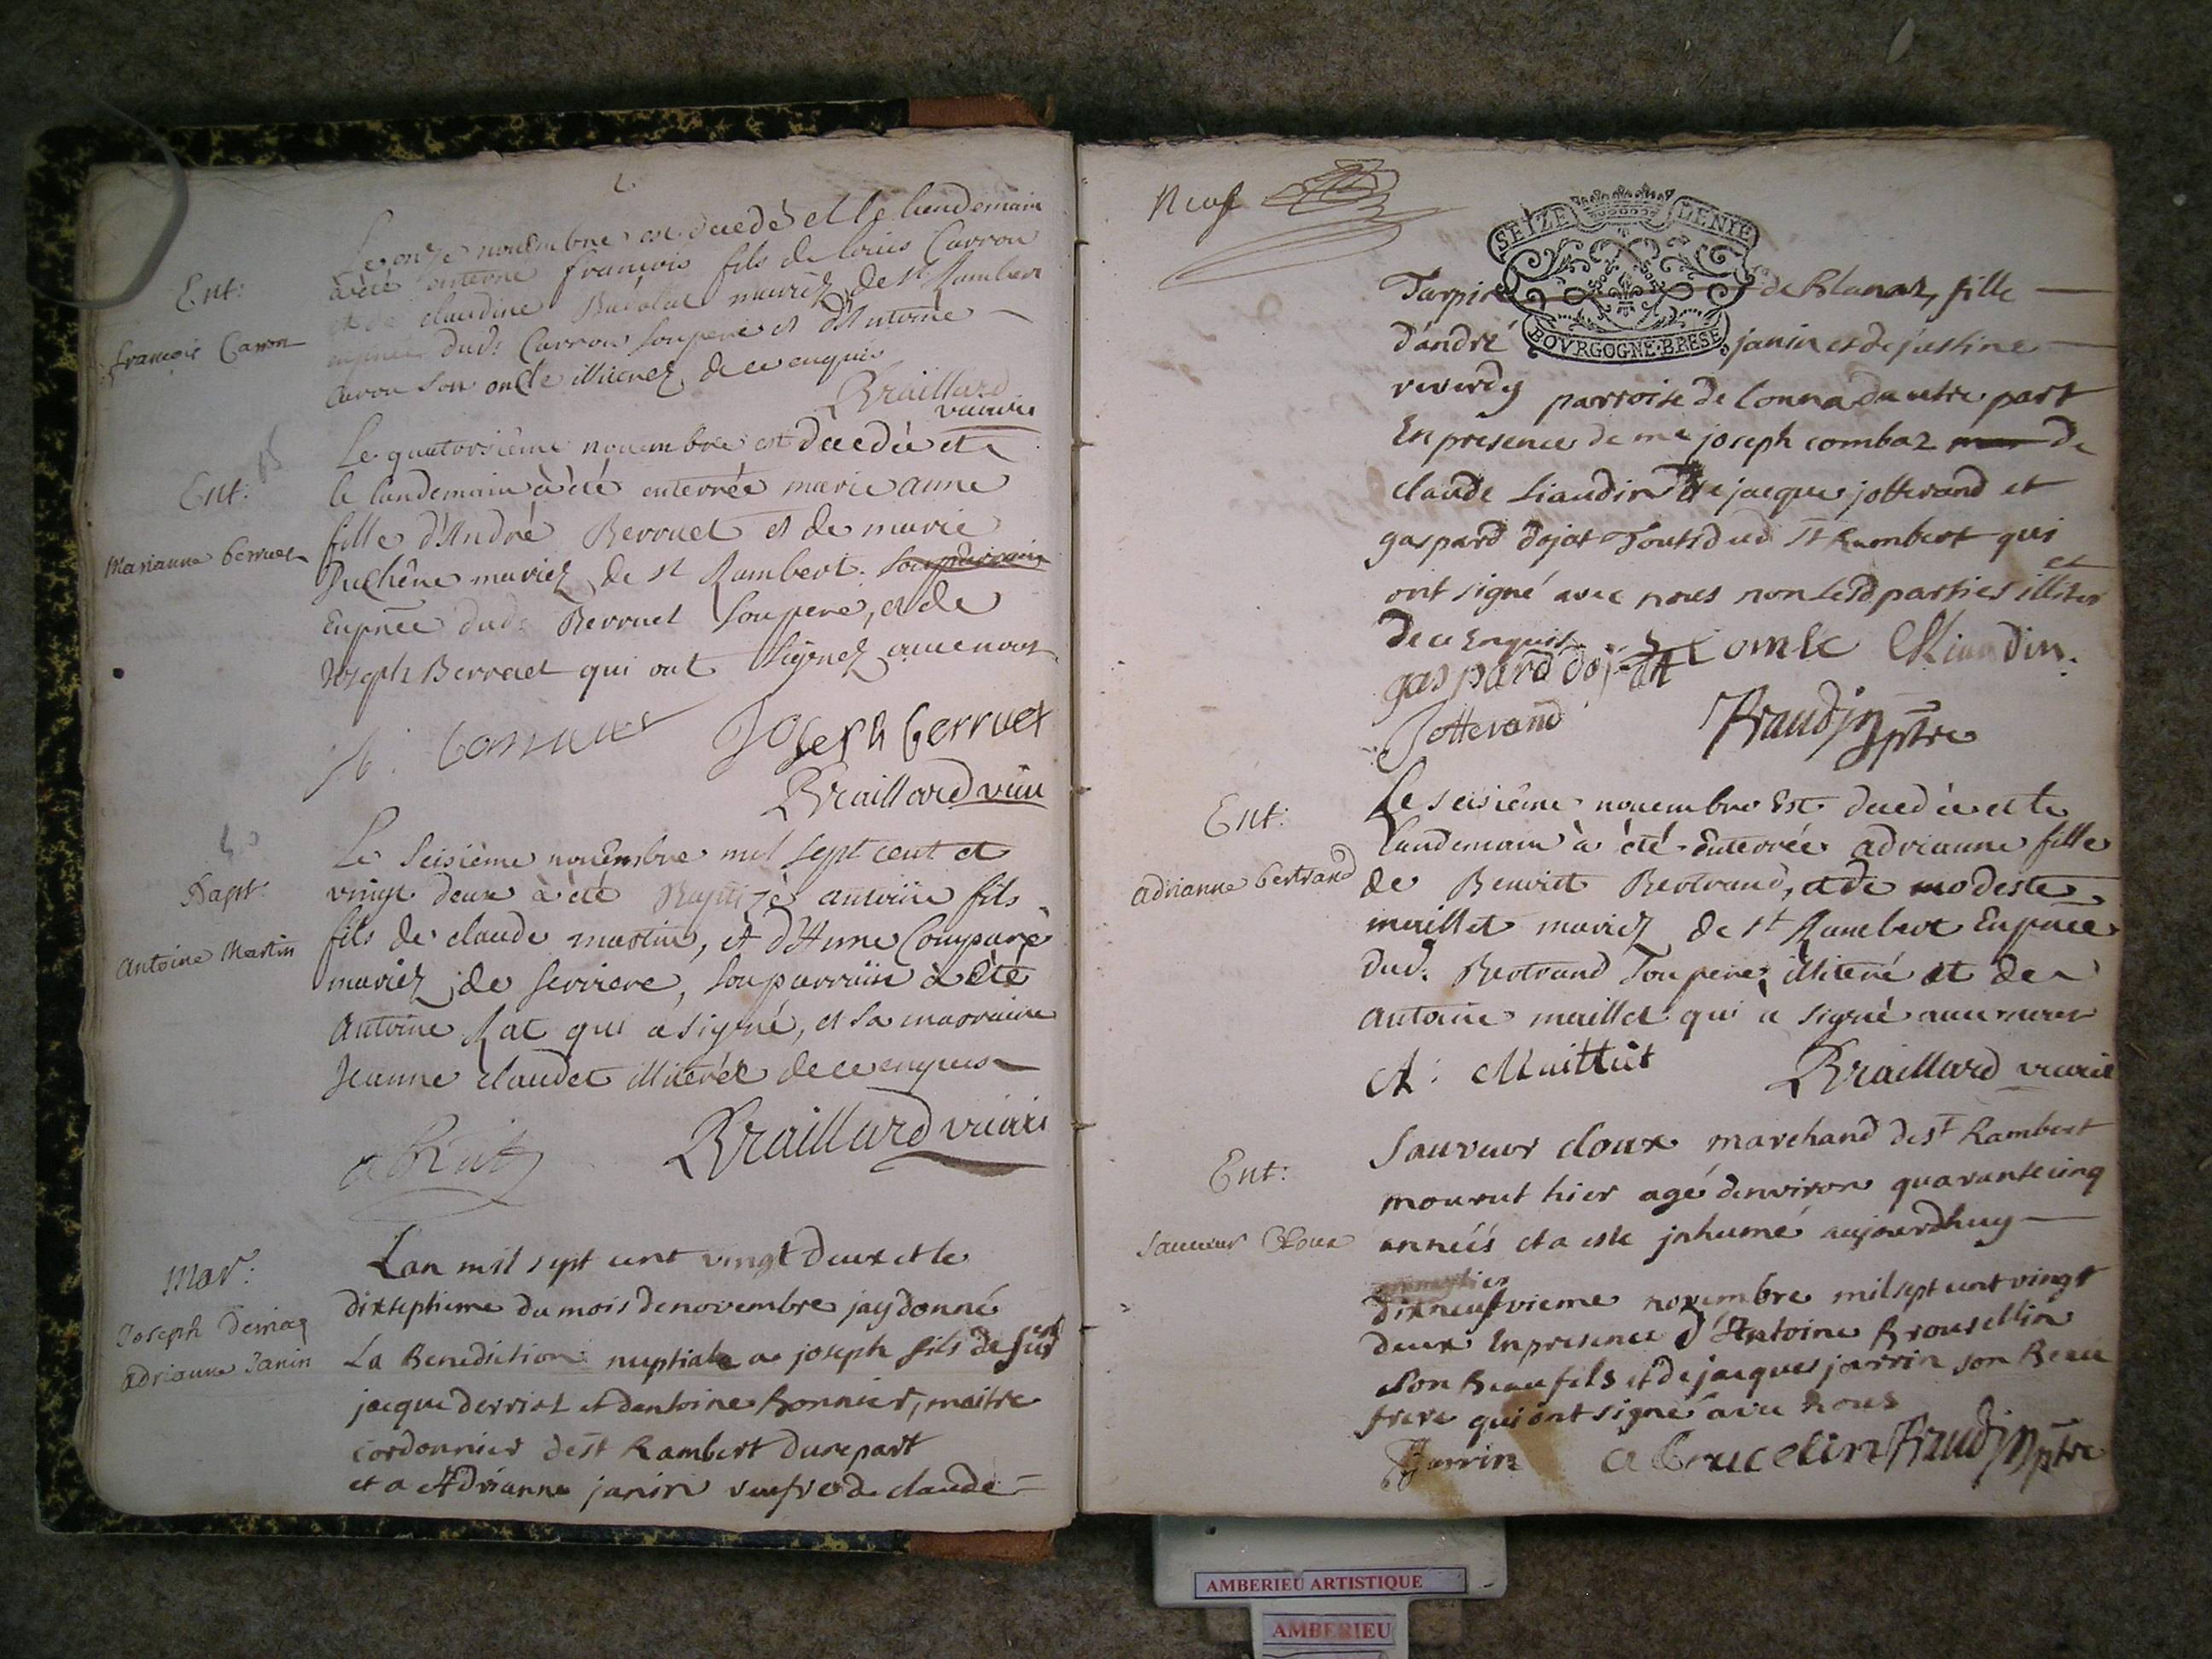 Ent:
françois Carron
Le onze nouembre est decedé et le lendemain
à été enterré françois fils de louis Carron
et de claudine mariez de st Rambert
dud: Carron son pere et d'Antoine
Caron son oncle illiterez de ce enquis
Braillard
vicaire
Ent:
Marianne berruet
Le quatorsième nouembre est decedée et
le landemain à été enterrée marie anne
fille d'André Berruet et de marie
Duchêne mariez de st Rambert. son parrain
Enpñce dud: Berruet son pere, et de
Joseph Berruet qui ont signez auec nous
Joseph berruet
Braillard vicai
Bapt:
Antoine Martin
Le seisième nouembre mil sept cent et
vingt deux à été Baptizé antoine fils
fils de claude martin, et d'Anne Compare
mariez de serriere, son parrain à été
Antoine Rat qui a signé, et sa marraine
Jeanne claudet illiterée de ce enquis
a Rat
Braillard vicaire
Mar:
Joseph
adrianne Janin
Lan mil sept cent vingt deux et le
dixseptieme du mois de novembre jay donné
La Benediction nuptiale a joseph fils de fut
jacque derriaz et dantoine Bonnier, maitre
cordonnier de st Rambert dune part
et a Adrianne janin veufve de claude
Neuf
SEIZE DENIE
BOVRGOGNE·BRESE
de Blanaz, fille
d'andré janin et de justine
reverdy parroise de Conna dautre part
En presence de me joseph combaz de
claude Liaudin de jacque jotterand et
gaspard dojat Touts dud st Rambert qui
ont signé avec nous non lesd parties illiter
et
de ce Enquis
gaspard dojat Combe Cl Liaudin
Jotterand
Braudin ptre
Ent:
adrianne bertrand
Le seisième nouembre Est decedée et le
landemain à été Enterrée adrianne fille
de Benoict Bertrand, et de modeste
maillet mariez de st Rambert Enpñce
dud: Bertrand son pere, illiteré et de
antoine maillet qui a signé auec nous
A: Maillet
Braillard vicaire
Ent:
Sauueur Cloux
Sauveur cloux marchand de st Rambert
mourut hier agé denviron quarante cinq
années et a este jnhumé aujourdhuy
dixneufvieme novembre mil sept cent vingt
deux En presence d'Antoine Brousellin
son Beau fils et de jacques jarrin son Beau
frere qui ont signé avec nous
Jarrin a brucelin Braudin ptre
AMBERIEU ARTISTIQUE
AMBERIEU